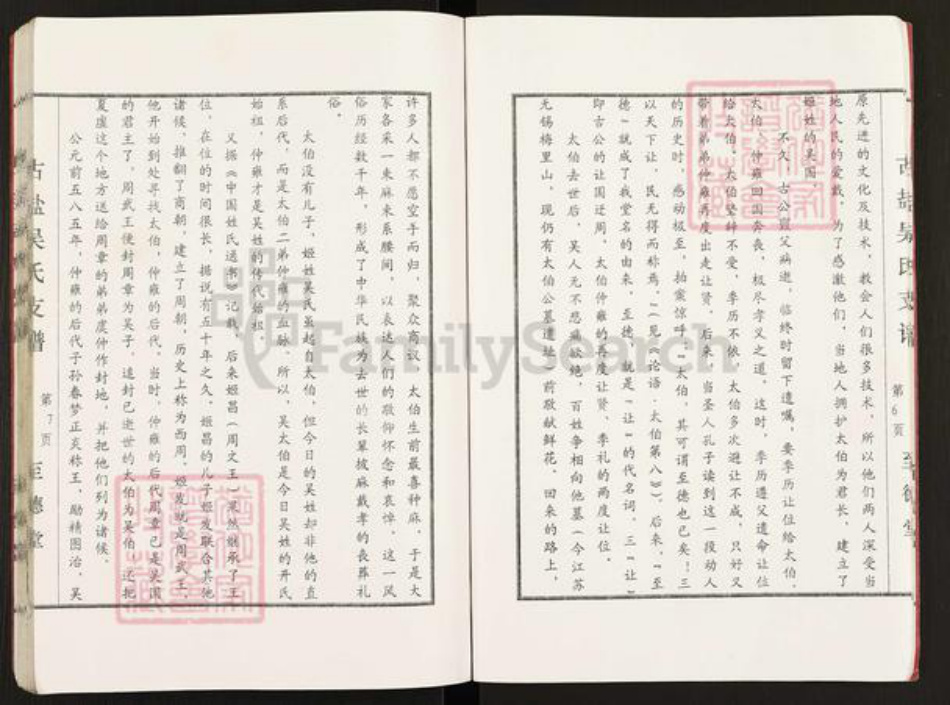 原先进的文化及技术，教会人们很多技术，所以他们两人深受当
地人民的爱戴，为了感激他们，当地人拥护太伯为君长，建立了
姬姓的吴国。
不久，古公亶父病逝，临终时留下遗嘱，要季历让位给太伯。
太伯、仲雍回国奔丧，极尽孝义之道，这时，季历遵父遗命让位
给太伯，太伯坚辞不受，季历不依，太伯多次避让不成，只好又
带着弟弟仲雍再度出走让贤，后来，当圣人孔子读到这一段动人
的历史时，感动极至，拍案惊呼："太伯，其可谓至德也已矣！三
以天下让，民无得而称焉。"（见《论语·太伯第八》），后来，"至
德"就成了我堂名的由来，至德，就是"让"的代名词，三"让"
即古公的让国迁周，太伯仲雍的再度让贤，季礼的两度让位。
太伯去世后，吴人无不悲痛欲绝，百姓争相向他墓（今江苏
无锡梅里山，现仍有太伯公墓遗址）前敬献鲜花，回来的路上，
古盐吴氏支谱
第6页
至德堂
许多人都不愿空手而归，聚众商议，太伯生前最喜种麻，于是大
家各采一束麻来系腰间，以表达人们的敬仰怀念和哀悼，这一风
俗历经数千年，形成了中华民族为去世的长辈披麻戴孝的丧葬礼
俗。
太伯没有儿子，姬姓吴氏虽起自太伯，但今日的吴姓却非他的直
系后代，而是太伯二弟仲雍的血脉，所以，吴太伯是今日吴姓的开氏
始祖，仲雍才是吴姓的传代始祖。
又据《中国姓氏通书》记载，后来姬昌（周文王）果然继承了王
位，在位的时间很长，据说有五十年之久，姬昌的儿子姬发联合其他
诸侯，推翻了商朝，建立了周朝，历史上称为西周，姬发就是周武王，
他开始到处寻找太伯，仲雍的后代，当时，仲雍的后代周章已是吴国
的君主了，周武王便封周章为吴子，追封已逝世的太伯为吴伯，还把
夏虚这个地方送给周章的弟弟虞仲作封地，并把他们列为诸侯。
公元前五八五年，仲雍的后代子孙寿梦正式称王，励精图治，吴
古盐吴氏支谱
第7页
至德堂
FamilySearch